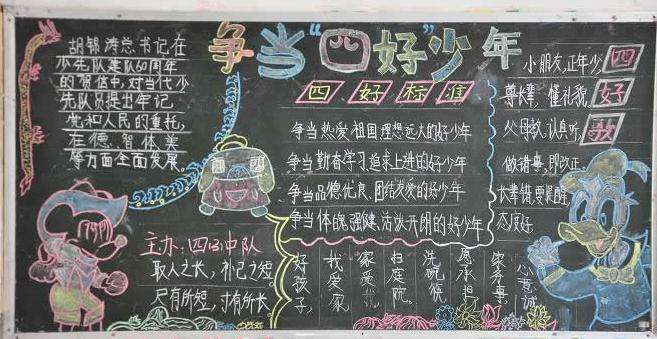 争当“四好”少年
胡锦涛总书记在
少先队建队60周年
的贺信中，对当代少
先队员提出牢记
党和人民的重托，
在德、智、体、美
等方面全面发展。
四好标准
争当热爱祖国理想远大的好少年
争当勤奋学习追求上进的好少年
争当品德优良、团结友爱的好少年
争当体魄强健、活泼开朗的好少年
四好歌
小朋友，正年少，
尊长辈，懂礼貌，
父母教，认真听，
做错事，即改正，
长辈错，要提醒，
态度好
主办：四(3)中队
取人之长，补己之短。
尺有所短，寸有所长
好孩子，
我爱家，
家爱我，
扫庭院，
洗碗筷，
愿承担，
家务事，
心意诚